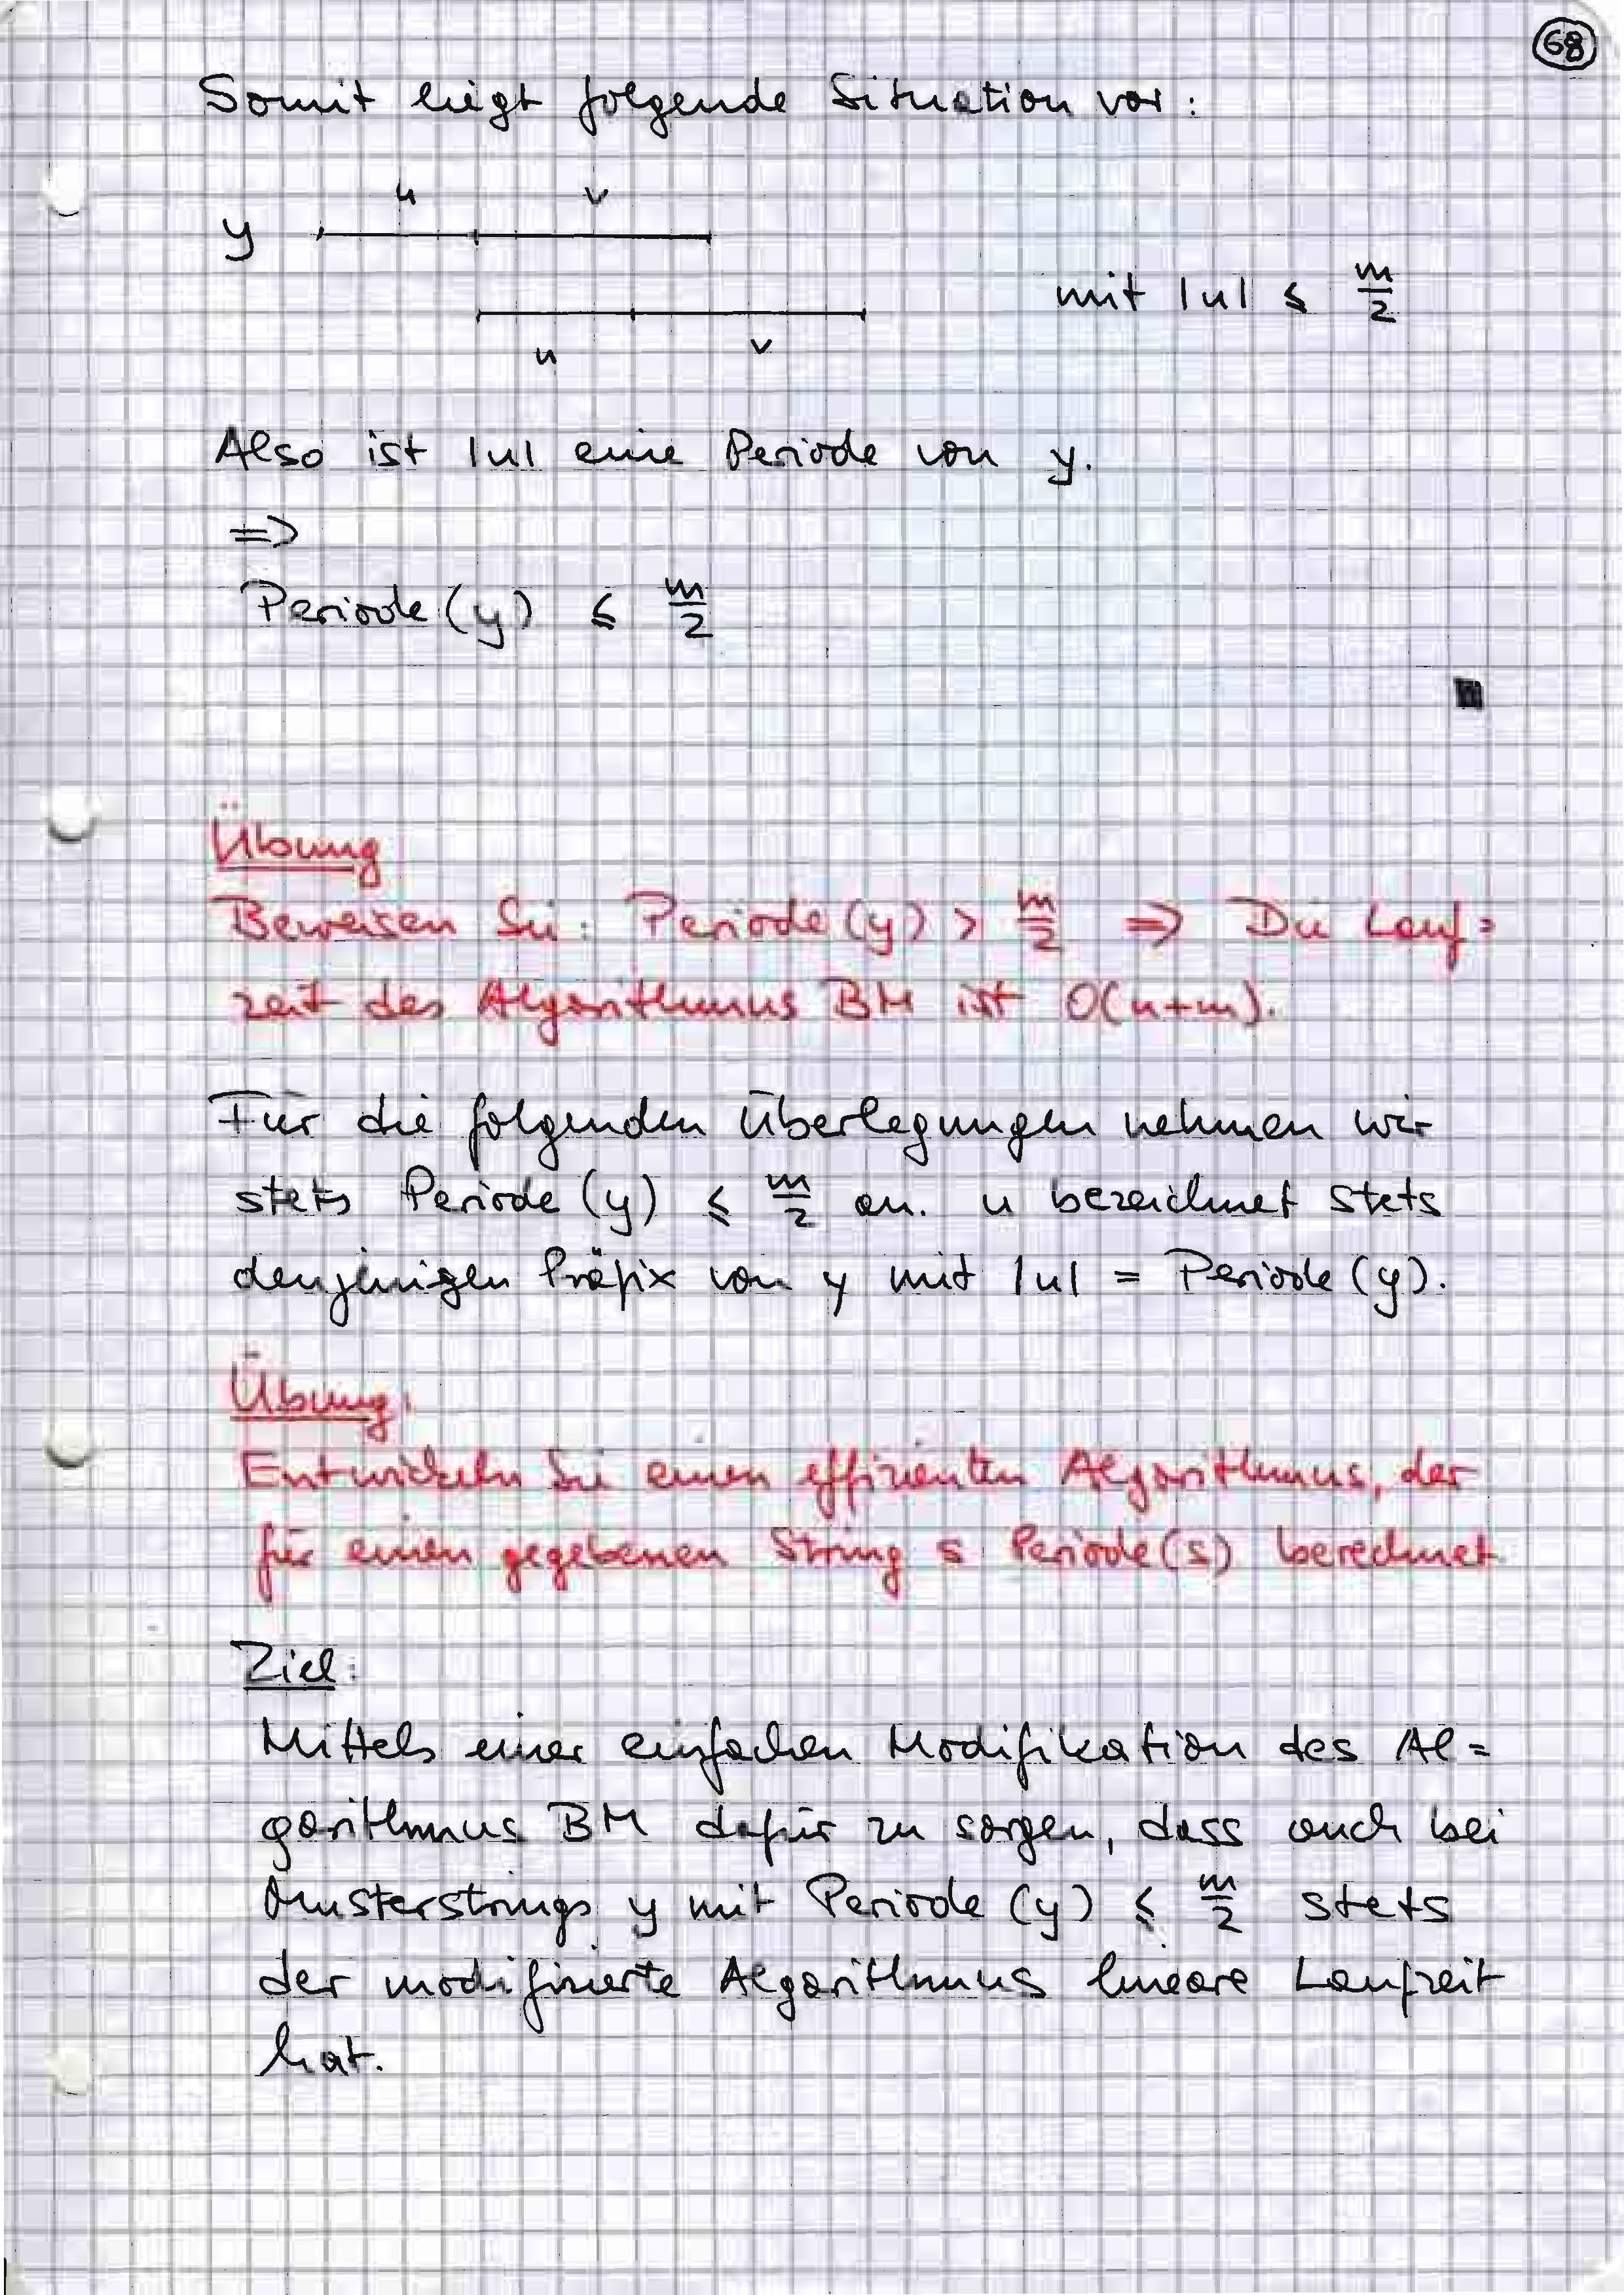 68
Somit liegt folgende Situation vor:
u v
y
mit |u| ≤ m/2
u v
Also ist |u| eine Periode von y.
⇒
Periode(y) ≤ m/2
Übung
Beweisen Sie: Periode(y) > m/2 ⇒ Die Lauf=
zeit des Algorithmus BM ist O(n+m).
Für die folgenden Überlegungen nehmen wir
stets Periode(y) ≤ m/2 an. u bezeichnet stets
denjenigen Präfix von y mit |u| = Periode(y).
Übung:
Entwickeln Sie einen effizienten Algorithmus, der
für einen gegebenen String s Periode(s) berechnet
Ziel:
Mittels einer einfachen Modifikation des Al=
gorithmus BM dafür zu sorgen, dass auch bei
Musterstrings y mit Periode(y) ≤ m/2 stets
der modifizierte Algorithmus lineare Laufzeit
hat.